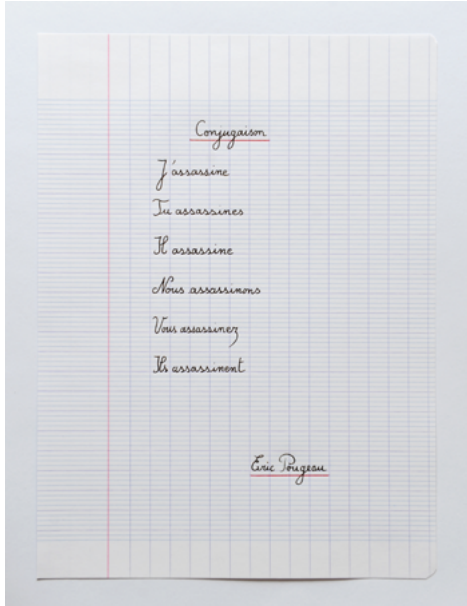 Conjugaison
J'assassine
Tu assassines
Il assassine
Nous assassinons
Vous assassinez
Ils assassinent
Eric Pougeau